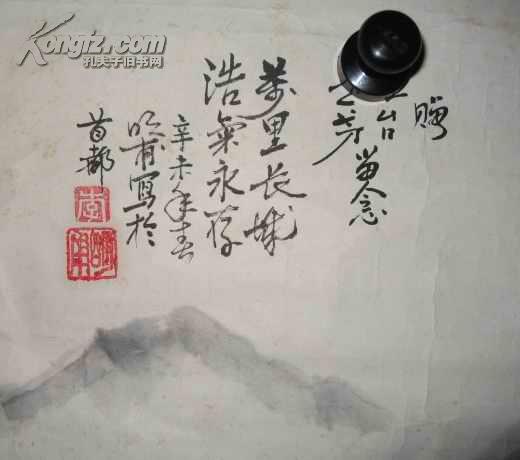 Kongfz.com
孔夫子旧书网
赠
台
留念
萬里长城
浩氣永存
辛未年春
甫寫於
首都